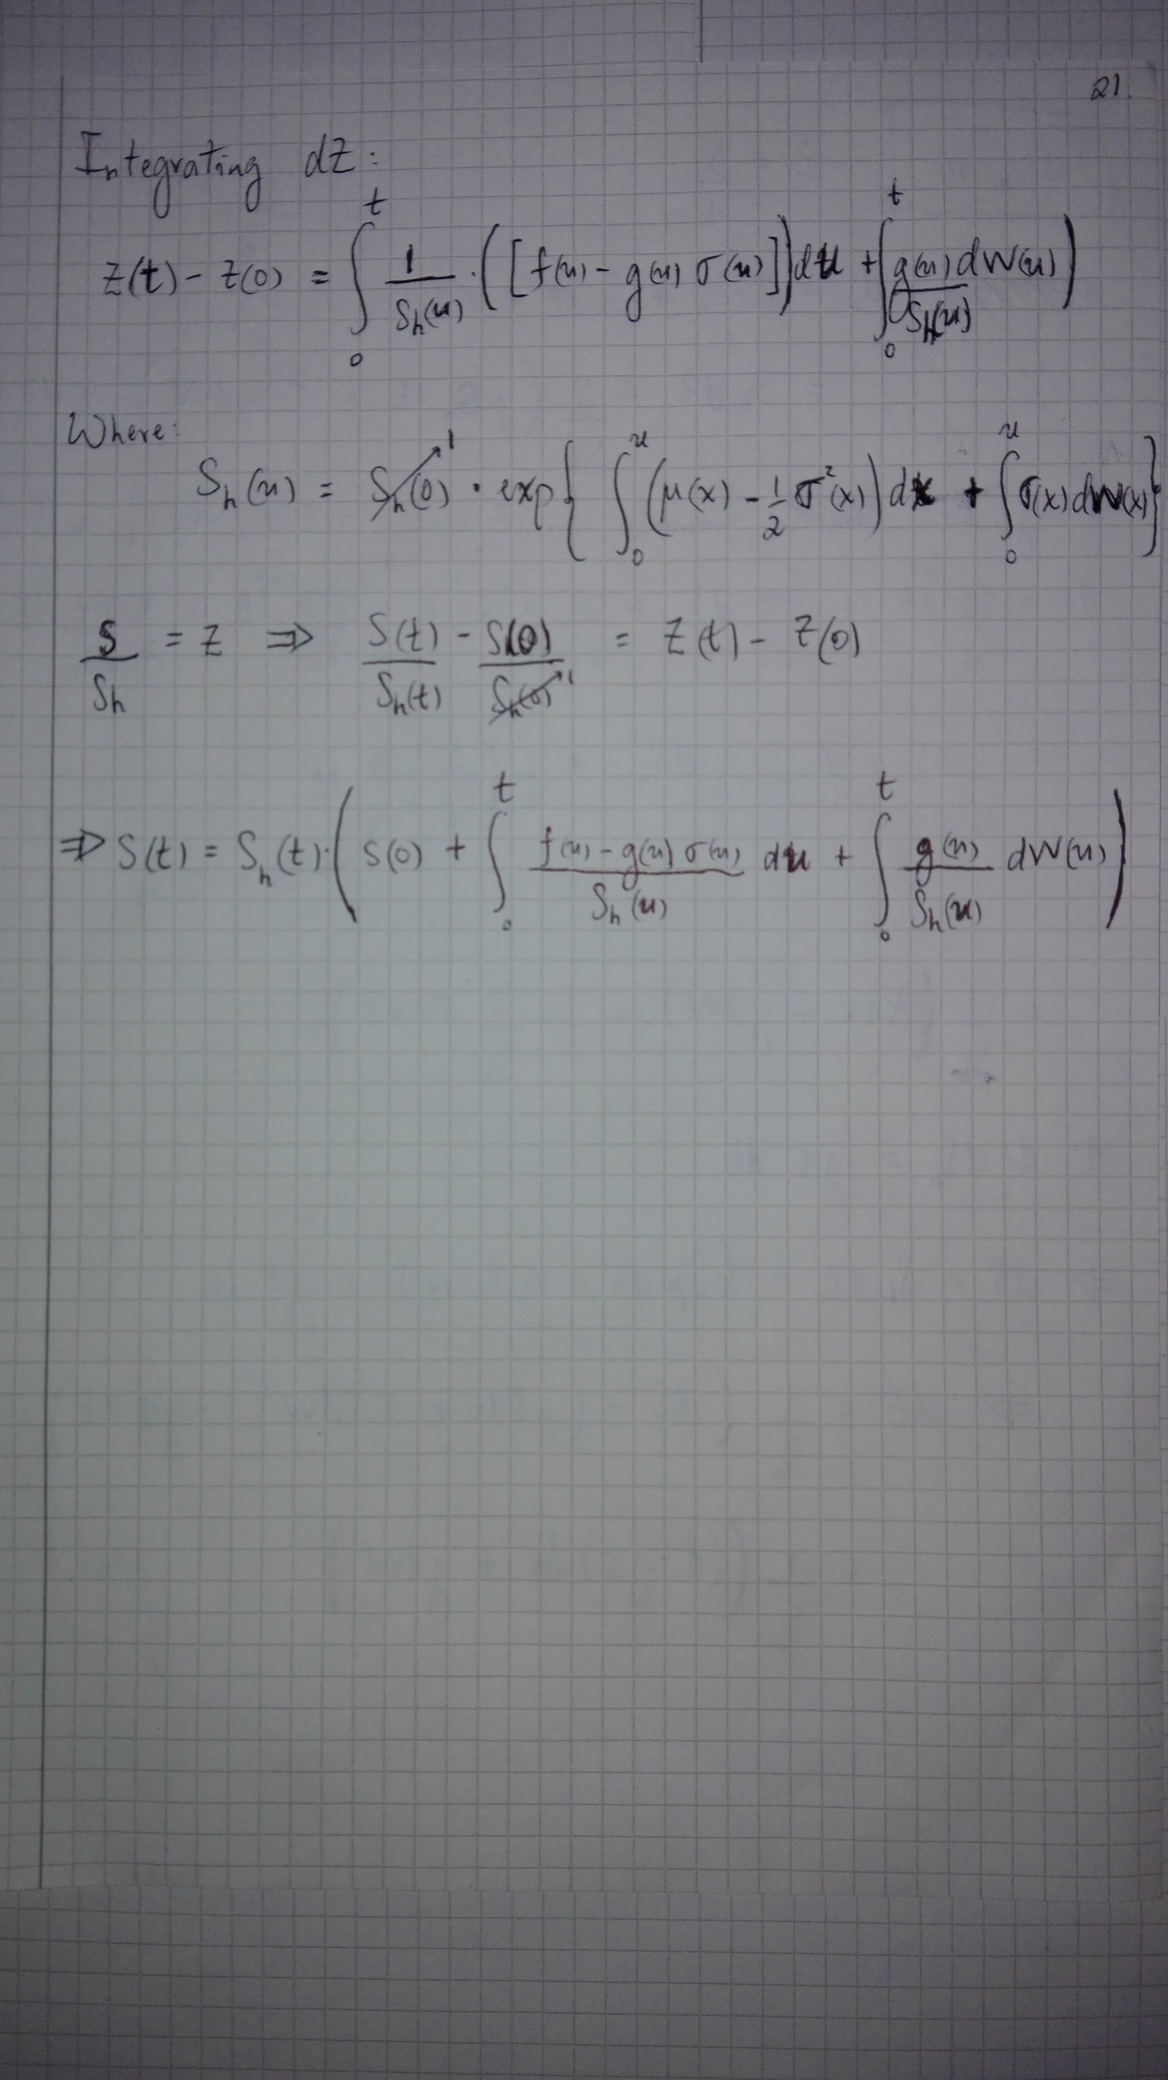 21.
Integrating dZ:
Z(t) - Z(0) = ∫₀ᵗ 1/Sₕ(u) · ([f(u) - g(u) σ(u)])du + ∫₀ᵗ g(u)dW(u)/Sₕ(u) )
Where:
Sₕ(u) = Sₕ(0)↗1 · exp{ ∫₀ᵘ (μ(x) - 1/2 σ²(x))dx + ∫₀ᵘ σ(x)dW(x)}
S/Sₕ = Z ⇒ S(t)/Sₕ(t) - S(0)/Sₕ(0)↗1 = Z(t) - Z(0)
⇒ S(t) = Sₕ(t)·( S(0) + ∫₀ᵗ (f(u) - g(u) σ(u))/Sₕ(u) du + ∫₀ᵗ g(u)/Sₕ(u) dW(u) )